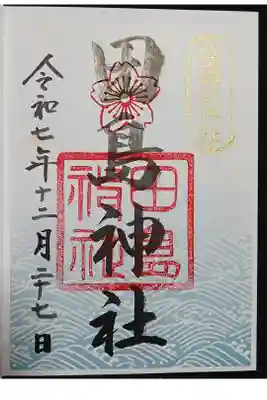 田島神社
田島神社
令和七年十二月二十七日